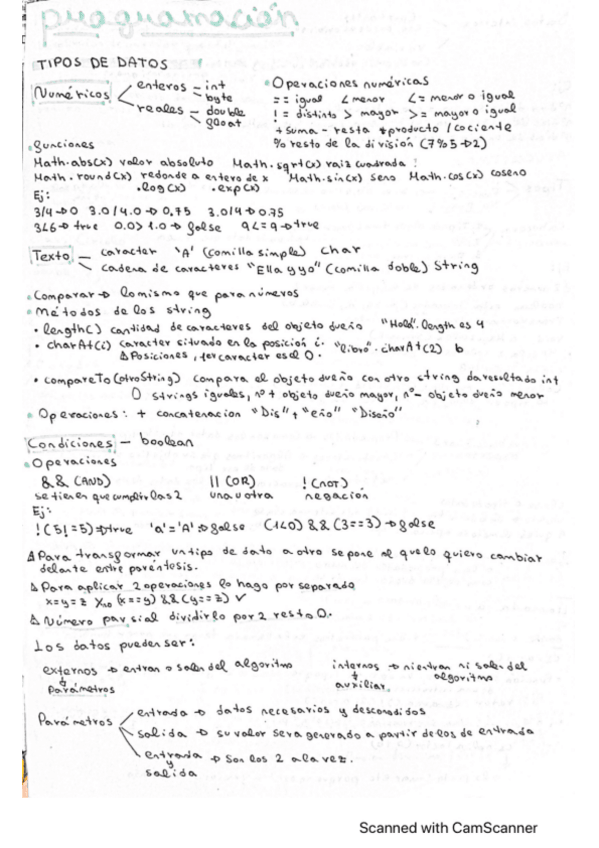 programación
TIPOS DE DATOS
Numéricos
enteros - int
- byte
reales - double
float
• Operaciones numéricas
== igual < menor <= menor o igual
!= distinto > mayor >= mayor o igual
+ suma - resta * producto / cociente
% resto de la división (7%5→2)
• funciones
Math.abs(x) valor absoluto Math.sqrt(x) raíz cuadrada
Math.round(x) redondea a entero de x Math.sin(x) seno Math.cos(x) coseno
.log(x) .exp(x)
Ej:
3/4→0 3.0/4.0→0,75 3.0/4→0.75
3<6→true 0.0>1.0→false 9<=9→true
Texto - caracter 'A' (comilla simple) char
- cadena de caracteres "Ella y yo" (comilla doble) String
• Comparar→ lo mismo que para números
• Métodos de los string
• length() cantidad de caracteres del objeto dueño "Hola".length es 4
• charAt(i) caracter situado en la posición i. "libro".charAt(2) b
Δ Posiciones, 1er caracter es el 0.
• compareTo(otroString) compara el objeto dueño con otro string da resultado int
0 strings iguales, nº+ objeto dueño mayor, nº- objeto dueño menor
• Operaciones: + concatenación "Dis"+"eño" "Diseño"
Condiciones - boolean
• Operaciones
&& (AND) || (OR) ! (NOT)
se tienen que cumplir las 2 una u otra negación
Ej:
!(5!=5)→true 'a'='A'→false (1<0)&&(3==3)→false
Δ Para transformar un tipo de dato a otro se pone al que lo quiero cambiar
delante entre paréntesis.
Δ Para aplicar 2 operaciones lo hago por separado
x=y=z X no (x==y)&&(y==z) ✓
Δ Número par si al dividirlo por 2 resta 0.
Los datos pueden ser:
externos → entran o salen del algoritmo
↓
parámetros
internos → ni entran ni salen del
algoritmo
↓
auxiliar.
Parámetros
entrada → datos necesarios y desconocidos
salida → su valor será generado a partir de los de entrada
entrada
y
salida
→ Son los 2 a la vez.
Scanned with CamScanner